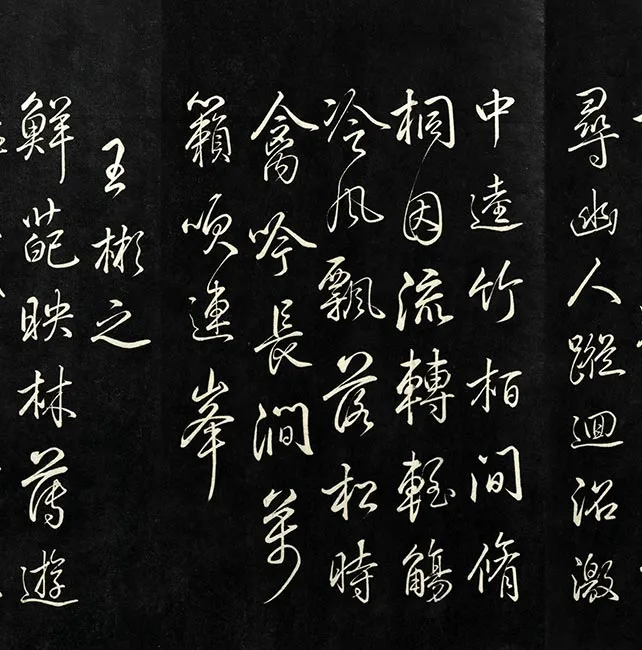 尋幽人蹤迴沼激
中逵竹柏間脩
桐因流轉輕觴
冷風飄落松時
禽吟長澗萬
籟吹連峯
王彬之
鮮葩映林薄遊